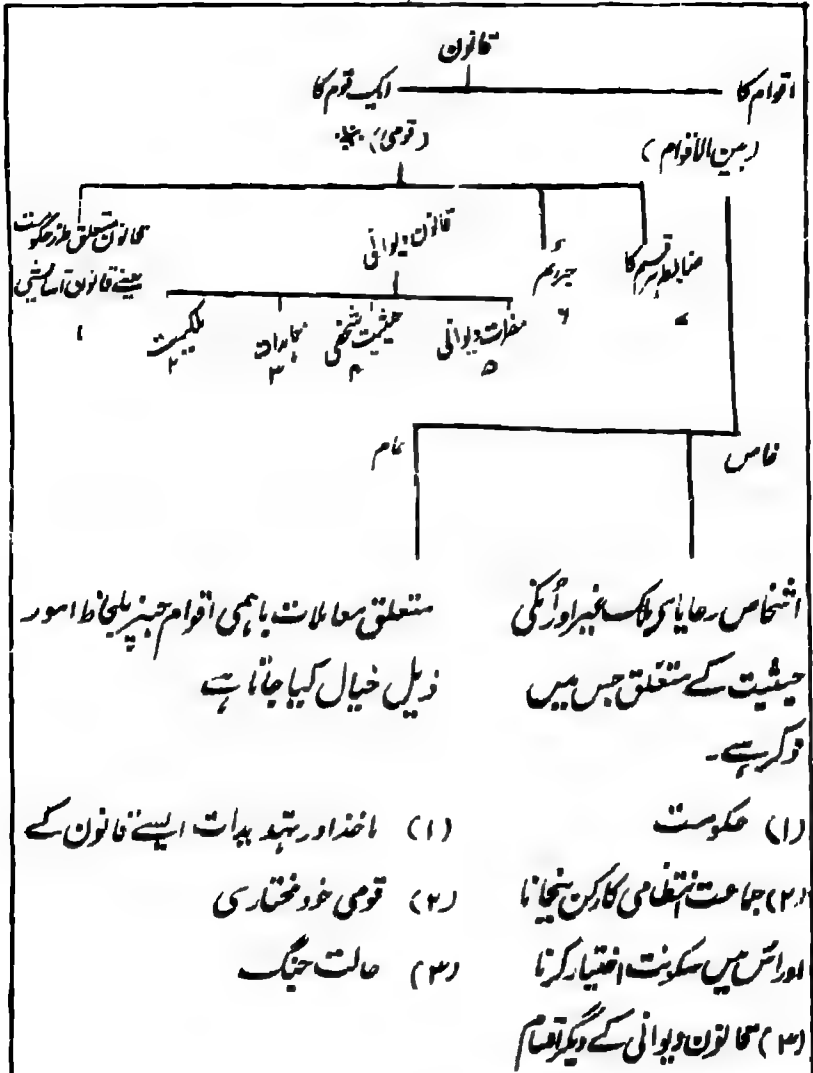 قانون
اقوام کا
ایک قوم کا
(بین الاقوام)
(قومی)
ضابطہ ہر قسم کا
۷
جرائم
۶
قانون دیوانی
قانون متعلق طرز حکومت
یعنے قانون اساسی
۱
مضرات دیوانی
۵
حیثیت شخصی
۴
معاہدات
۳
ملکیت
۲
خاص
عام
اشخاص رعایای ملک غیر اور اُنکی
حیثیت کے متعلق جس میں
ذکر ہے۔
(۱) حکومت
(۲) جماعت انتظامی کا رکن بنجانا
اور اس میں سکونت اختیار کرنا
(۳) قانون دیوانی کے دیگر اقسام
متعلق معاملات باہمی اقوام جنپر بلحاظ امور
ذیل خیال کیا جاتا ہے
(۱) ماخذ اور تہدیدات ایسے قانون کے
(۲) قومی خود مختاری
(۳) حالت جنگ